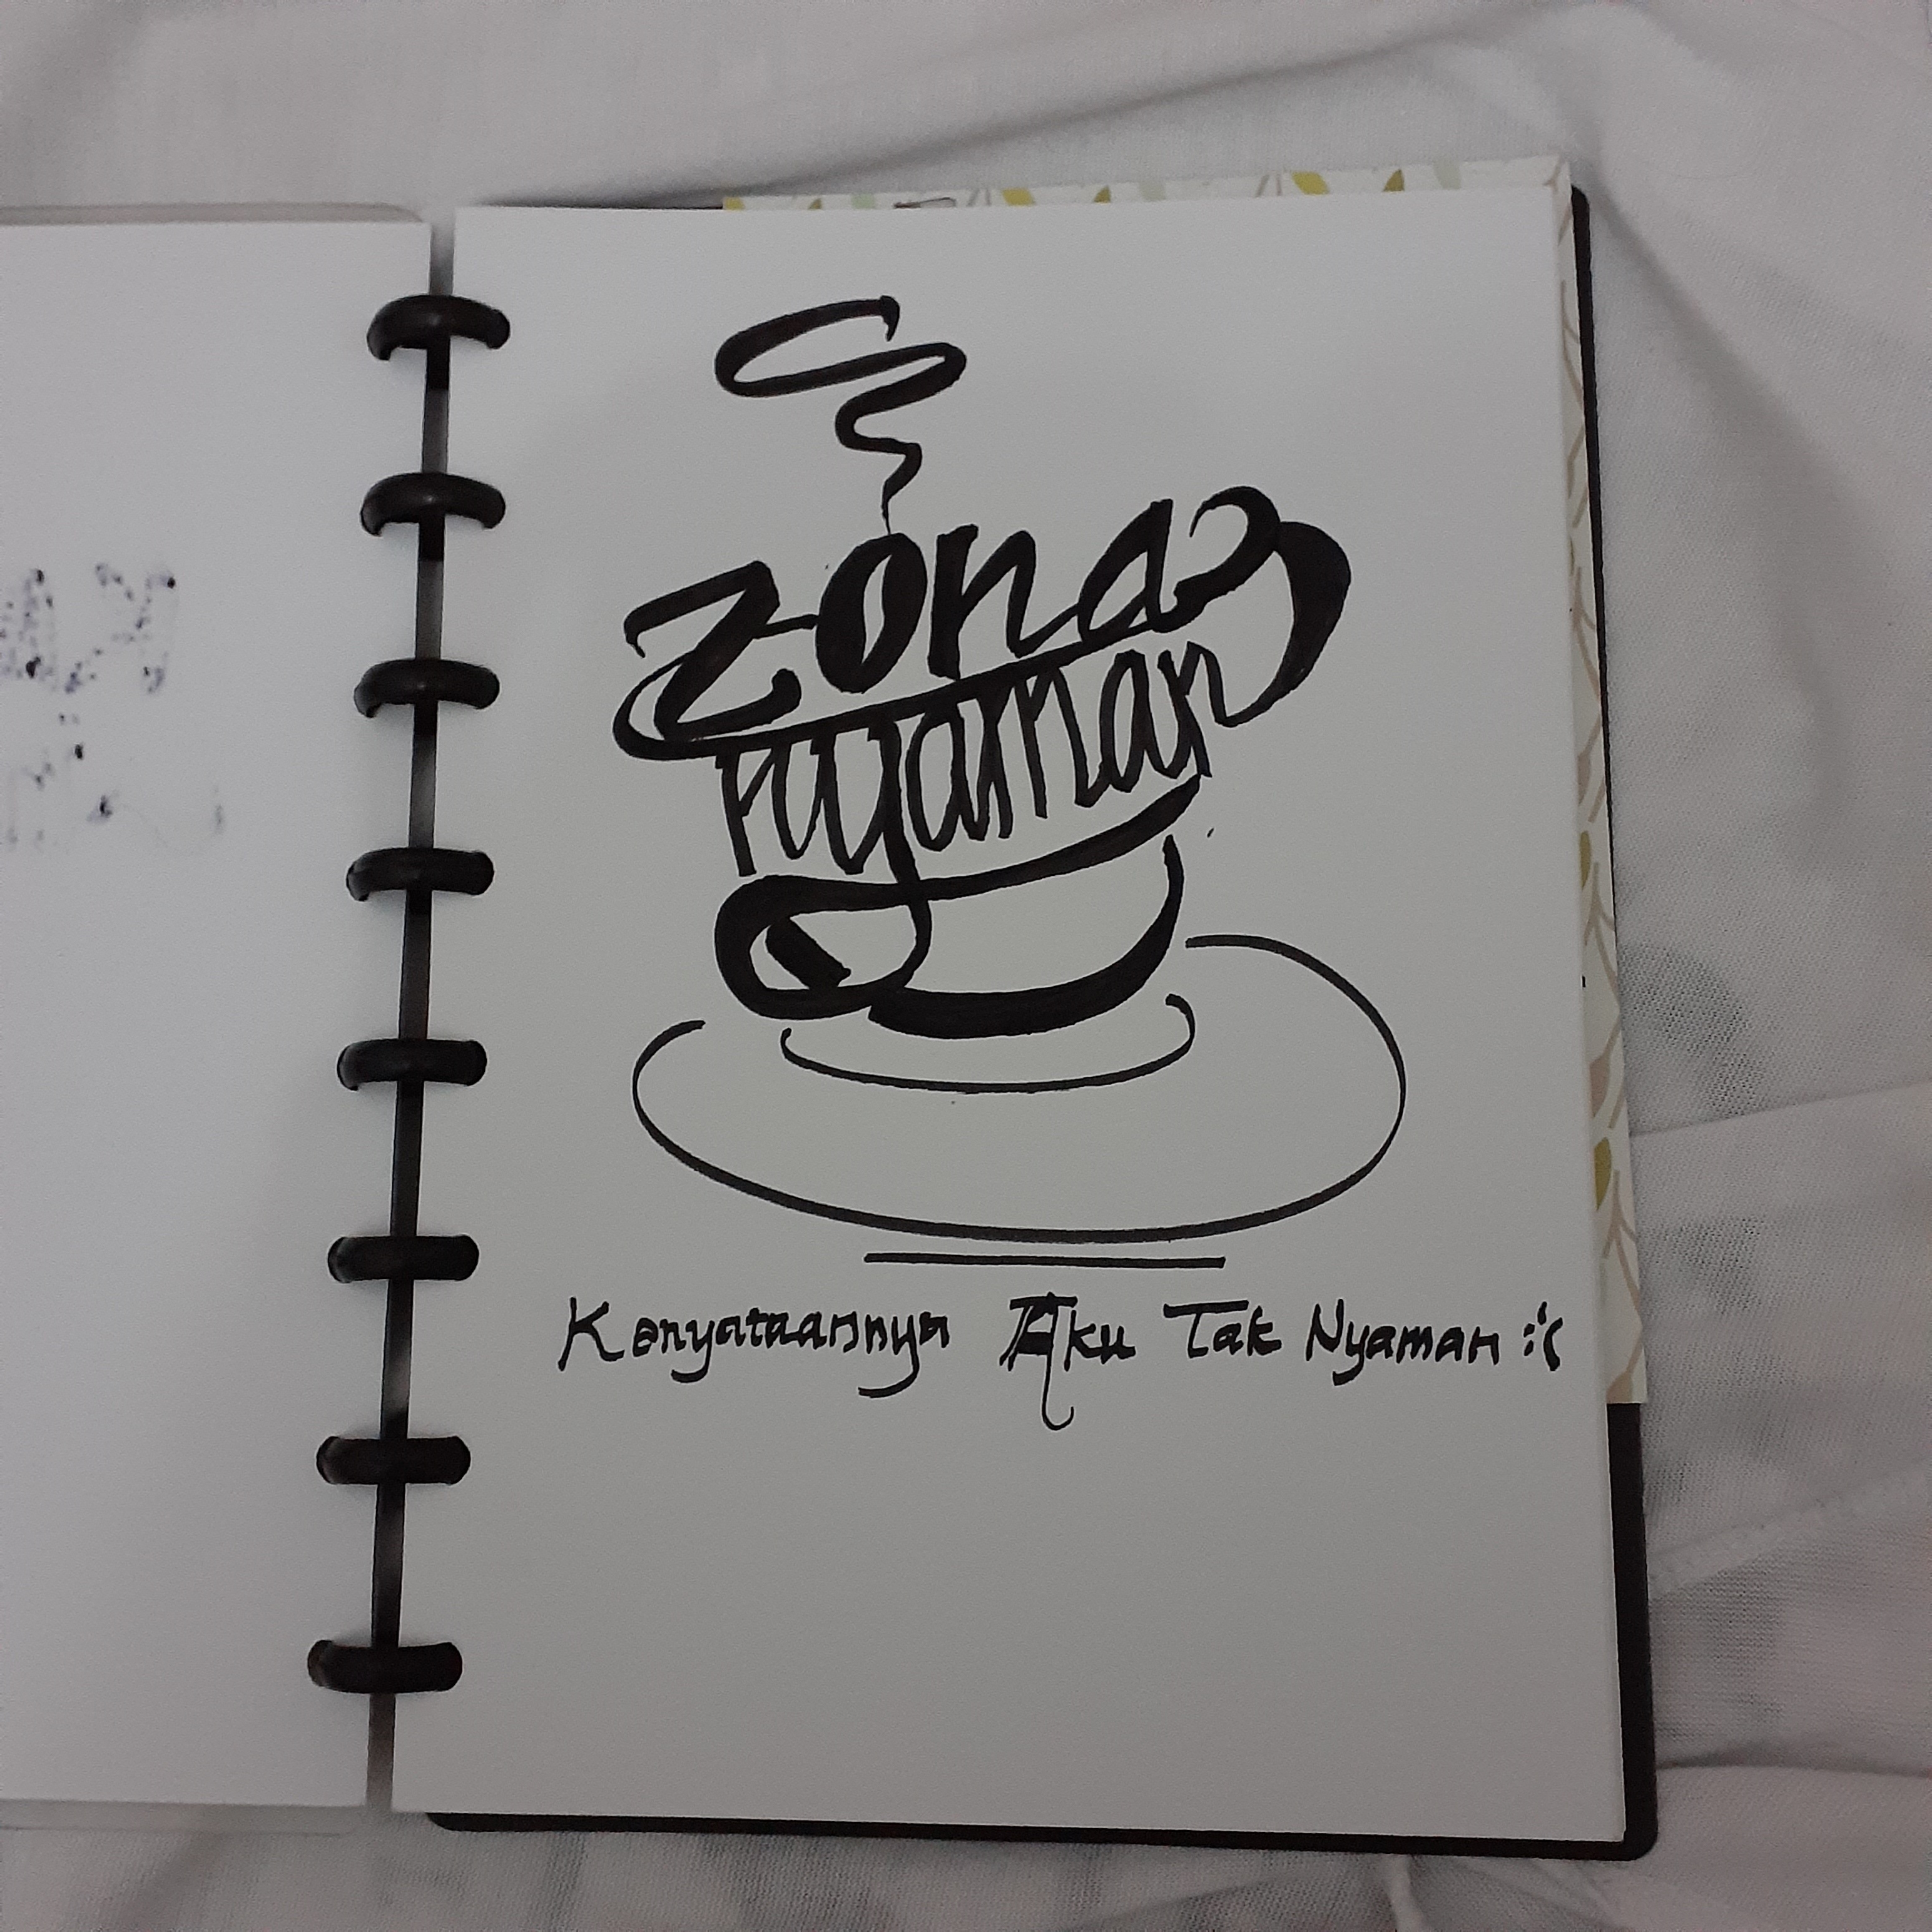 zona
nyaman
Kenyataannya Aku Tak Nyaman :'(